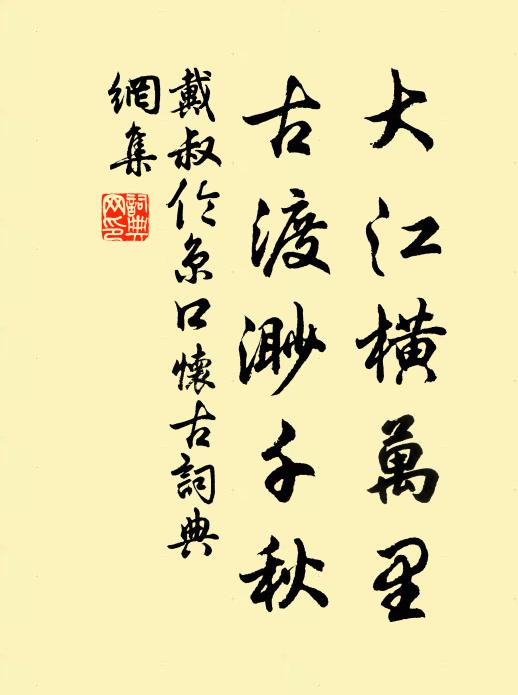 大江橫萬里
古渡渺千秋
戴叔伦京口懷古詞典
網集
詞典
网印